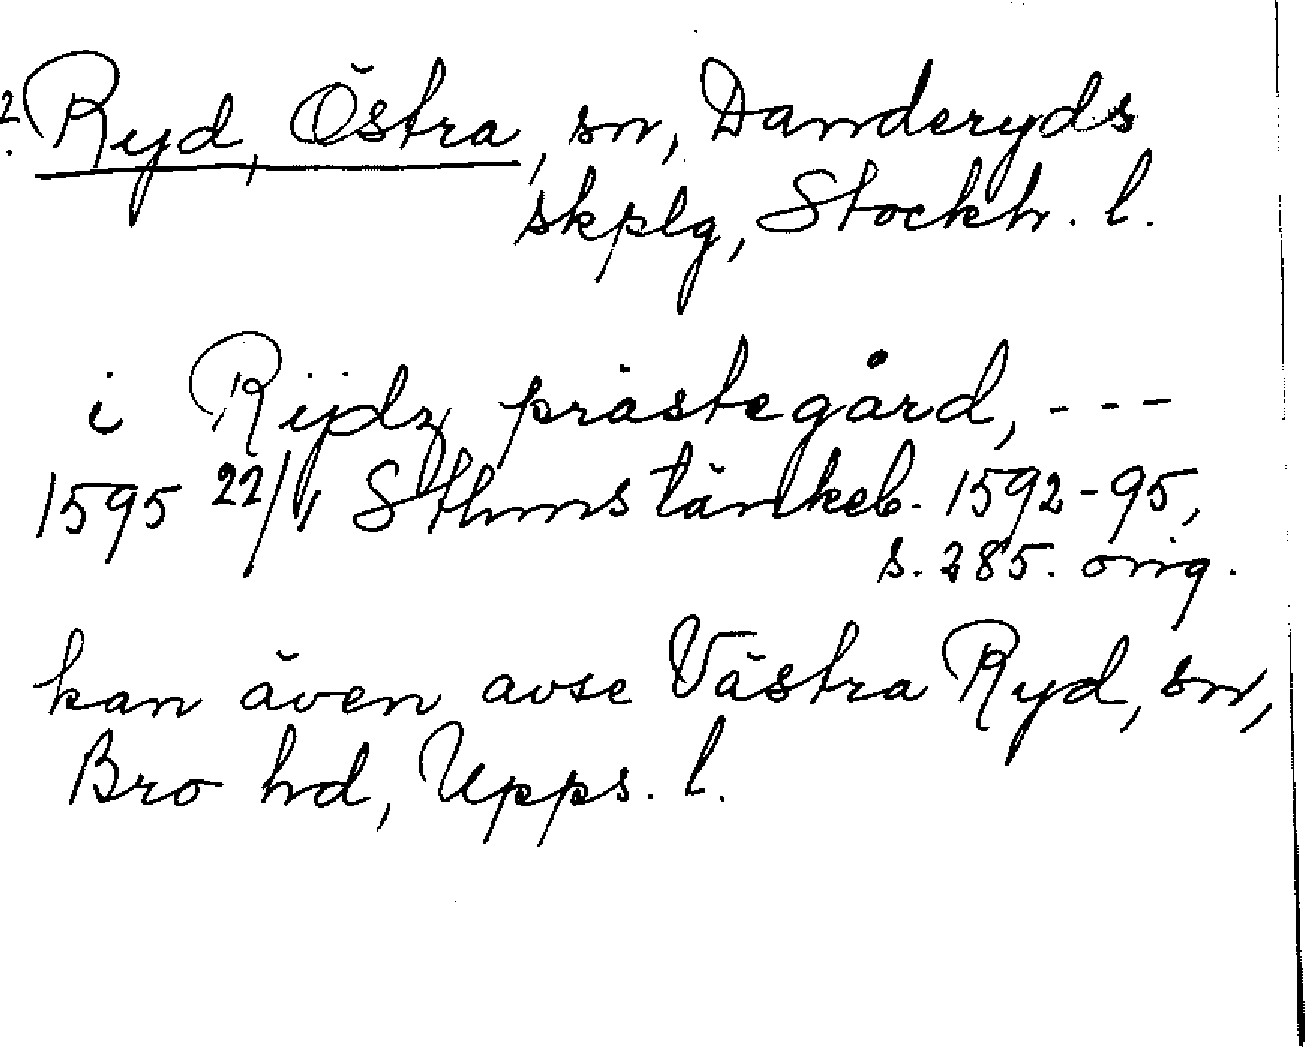 2. Ryd, Östra, sn, Danderyds
skplg, Stockh. l.
i Rijdz prästegård, ---
1595 22/1 Sthms tänkeb. 1592-95,
s. 285. orig.
kan även avse Västra Ryd, sn,
Bro hd, Upps. l.